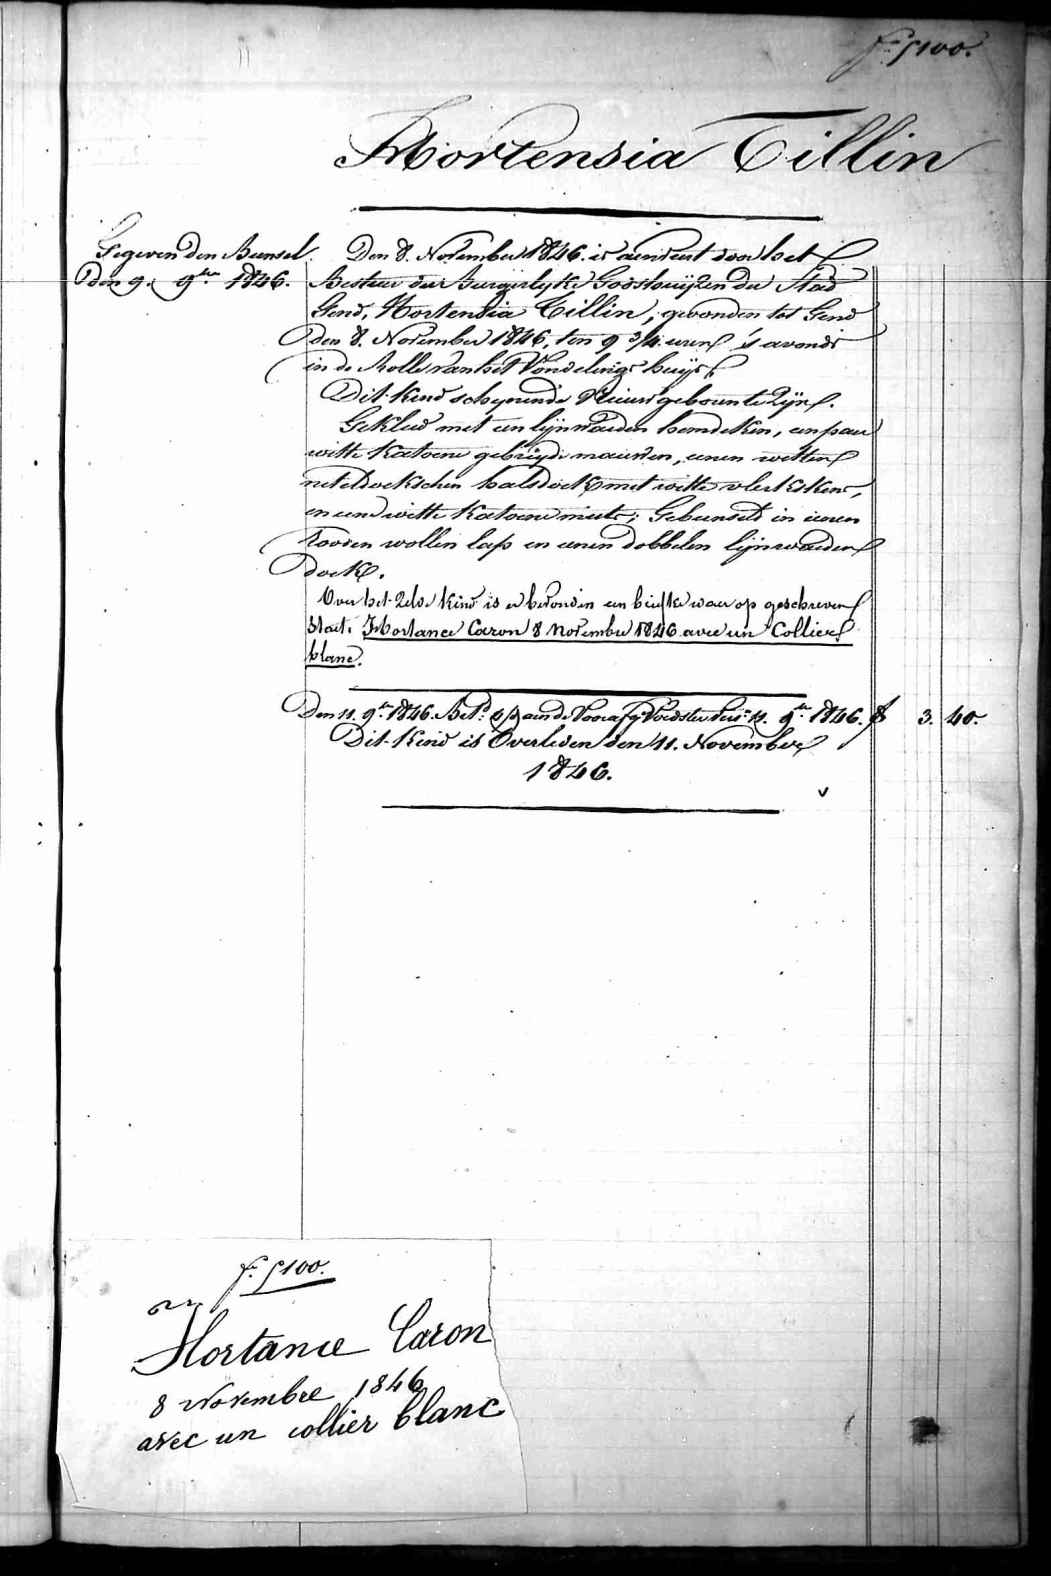 f.° 5100.
Hortensia Tillin
Gegeven den Bunsel
den 9. 9ber 1846.
Den 8. November 1846. is aenveert door het
Bestuer der Burgerlyke Godshuijzen der Stad
Gend, Hortensia Tillin, gevonden tot Gend
den 8. November 1846, ten 9 3/4 uren 's avonds
in de Rolle van het Vondelings huijs.
Dit kind schynende Nieuw geboren te Zijn.
Gekleed met een lijnwaeden hemdeken, een paer
witte katoene gebreyde mauwen, eenen witten
neteldoekschen halsdoek met witte vlekskens,
en eene witte katoene muts; Gebunseld in eenen
rooden wollen lap en eenen dobbelen lijnwaeden
doek.
Over het zelve kind is er bevonden een briefke waer op geschreven
Staet: Hortance Caron 8 Novembre 1846 avec un Collier
blanc.
Den 11. 9ber 1846. Bet.d aen de Voedster 11. 9ber 1846. f 3. 40.
Dit kind is Overleden den 11. November
1846.
f.° 5100.
Hortance Caron
8 Novembre 1846
avec un collier blanc